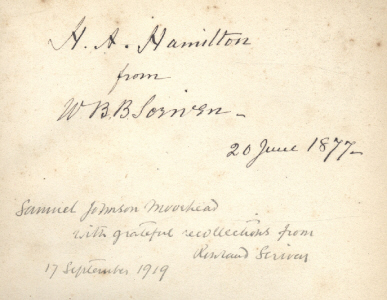 H. A. Hamilton
from
W B. B. Scriven
20 June 1877
Samuel Johnson Moorhead
with grateful recollections from
Scriven
17 September 1919